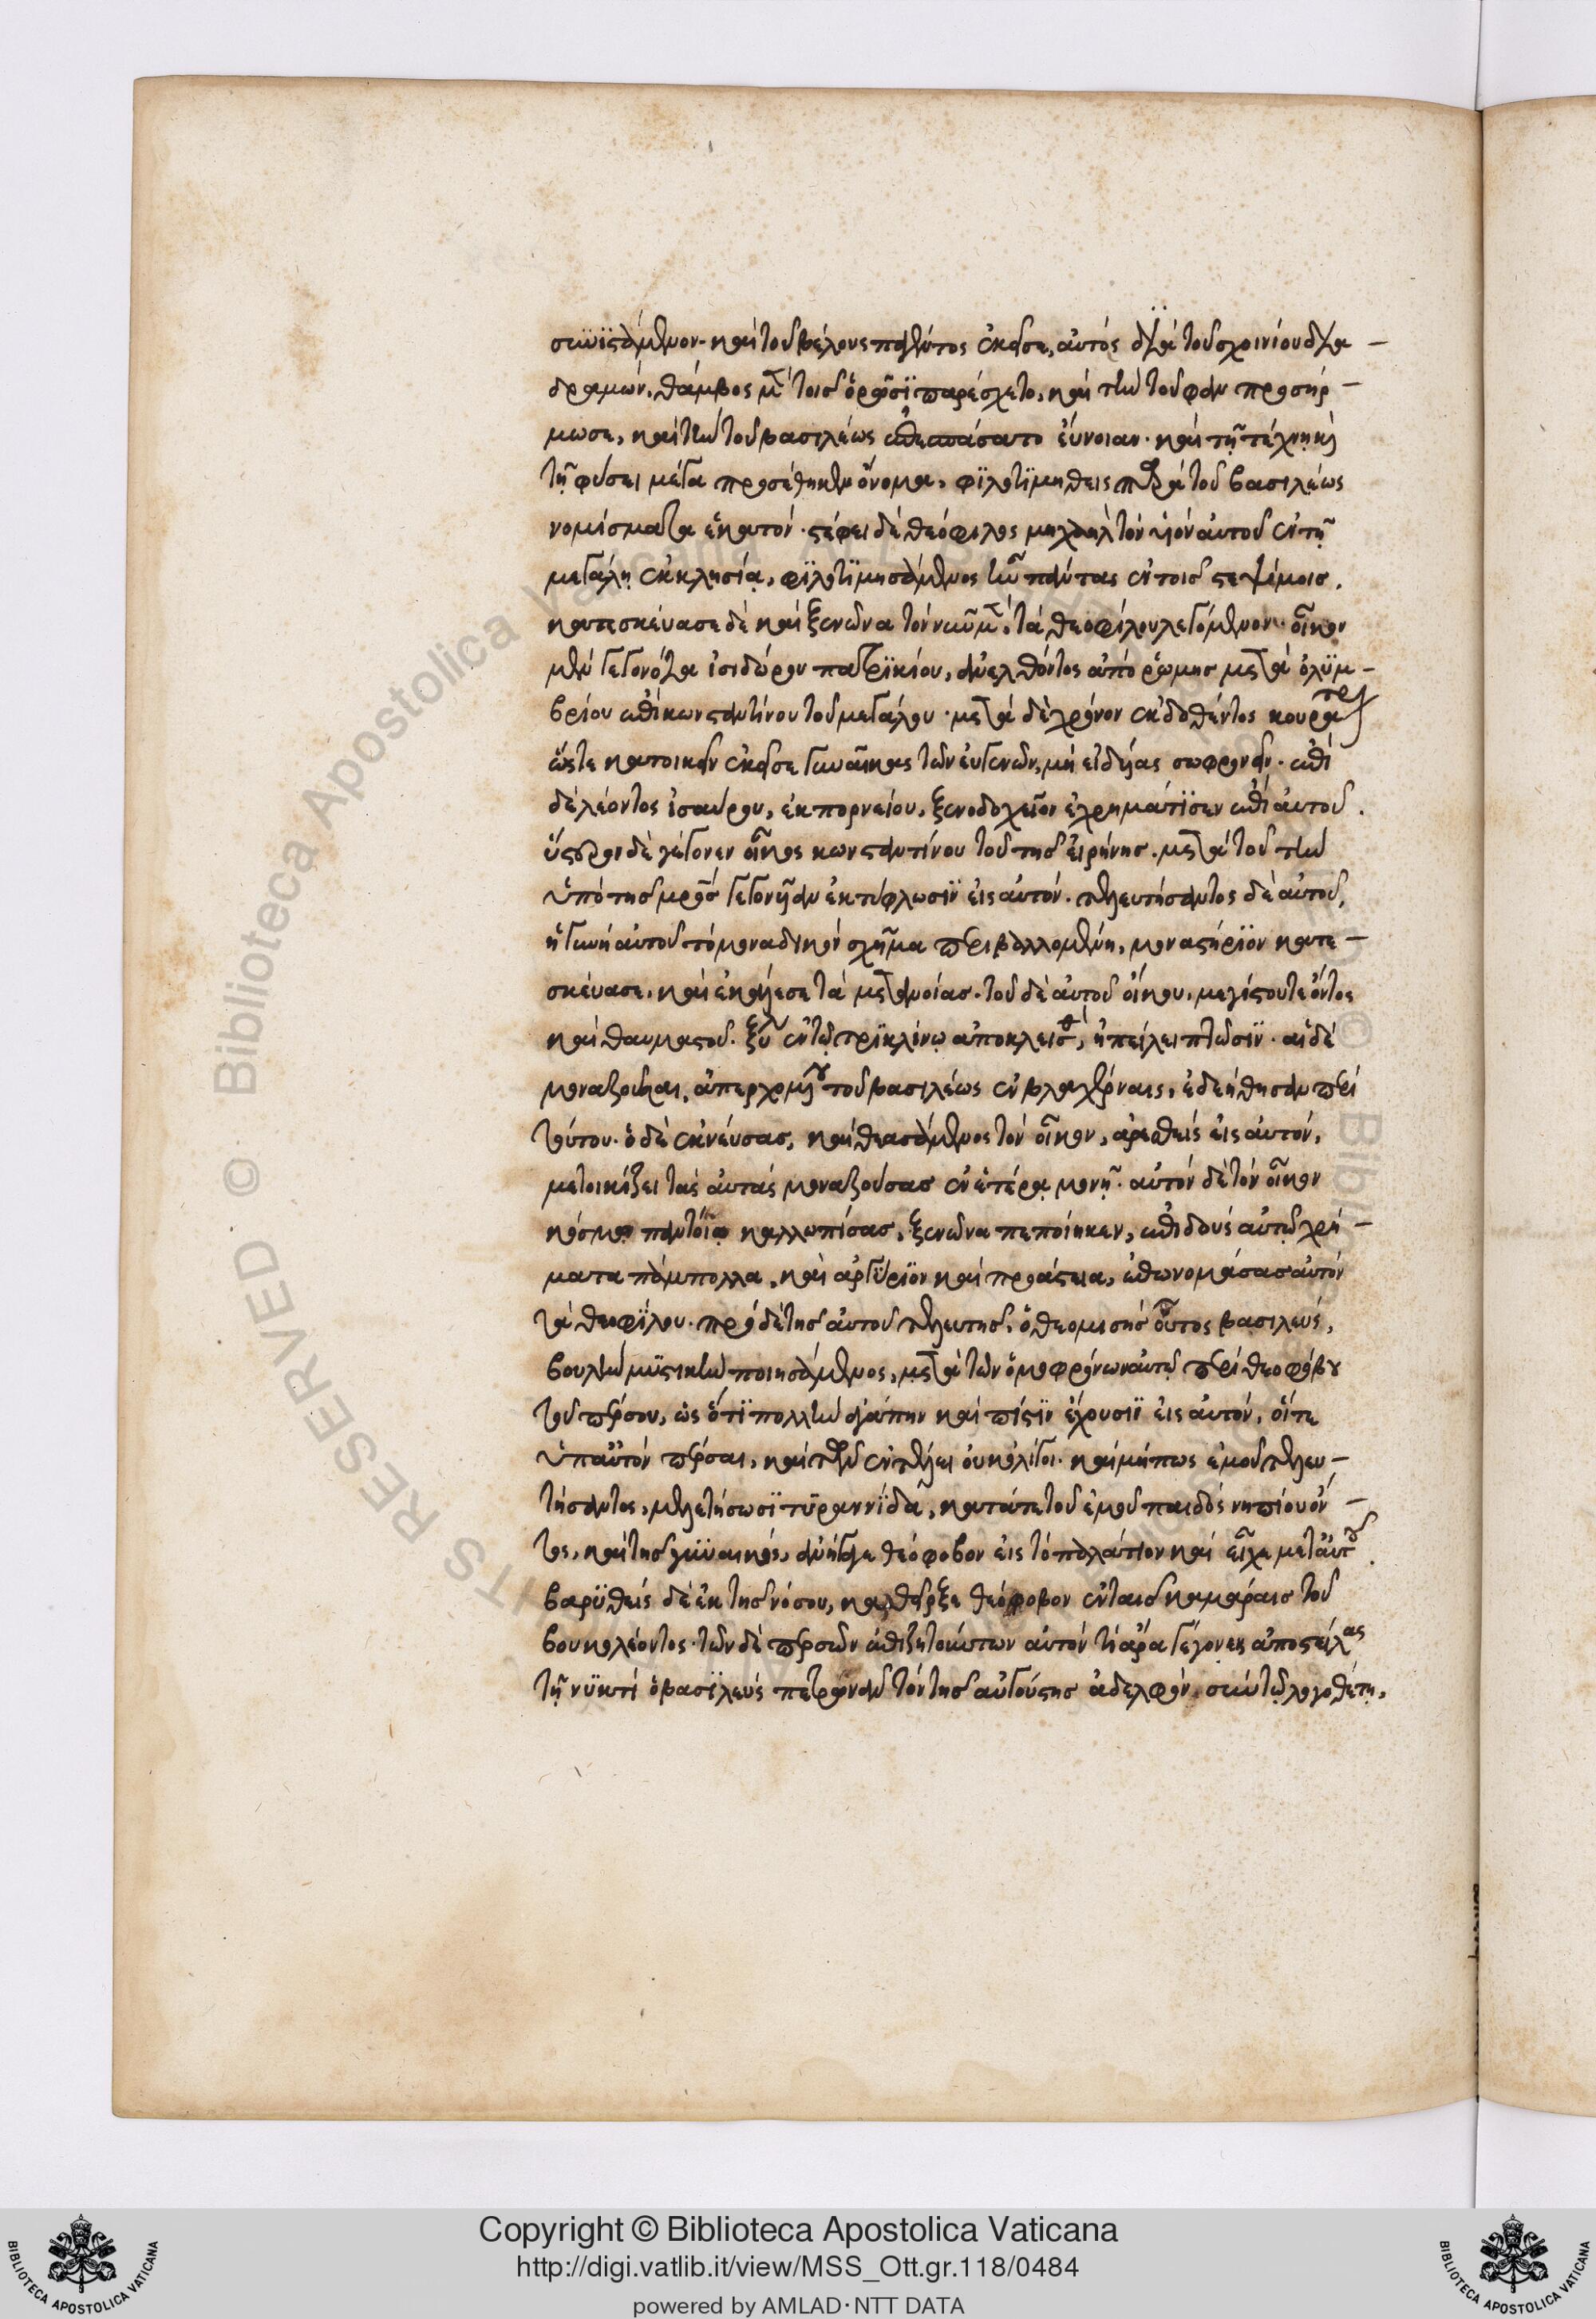 συνϊστάμενον· καὶ τοῦ βέλους παρόντος ἐκεῖσε, αὐτὸς διὰ τοῦ σχοινίου δια –
δραμών, θάμβος μὲν τοῖς ὁρῶσϊ παρέσχετο, καὶ τὴν τοῦφαν προσήρ –
μωσε, καὶ τὴν τοῦ βασιλέως ἐπεσπάσατο εὔνοιαν· καὶ τῇ τέχνῃ κὶ
τῇ φύσει μέγα προσέθηκεν ὄνομα, φϊλοτϊμηθεὶς παρὰ τοῦ βασιλέως
νομίσματα ἑκατόν· στέφει δὲ θεόφιλος μιχαὴλ τὸν υἱὸν αὐτοῦ ἐν τῇ
μεγάλῃ ἐκκλησίᾳ, φϊλοτϊμησάμενος τῶ πάντας ἐν τοῖς στεψίμοις.
κατεσκεύασε δὲ καὶ ξενῶνα τὸν νῦν, τὰ θεοφίλου λεγόμενον· οἶκον
μὲν γεγονότα ἰσιδώρου πατρϊκίου, ἀνελθόντος ἀπὸ ῥώμης μετὰ ὀλϋμ –
βρίου ἐπὶ κωνσταντίνου τοῦ μεγάλου· μετὰ δὲ χρόνον ἐκδοθέντος
ὥστε κατοικεῖν ἐκεῖσε γυναῖκας τῶν εὐγενῶν, μὴ εἰδυίας σωφρονεῖν· ἐπὶ
δὲ λέοντος ἰσαύρου, ἐκ πορνείου, ξενοδοχεῖον ἐχρημάτϊσεν ἐπ' αὐτοῦ.
ὕστερον δὲ γέγονεν οἶκος κωνσταντίνου τοῦ τῆς εἰρήνης. μετὰ τοῦ τὴν
ὑπὸ τῆς μρὸς γεγονυῖαν ἐκτύφλωσϊν εἰς αὐτόν. τελευτήσαντος δὲ αὐτοῦ,
ἡ γυνὴ αὐτοῦ τὸ μοναδικὸν σχῆμα περιβαλλομένη, μοναστήρϊον κατε –
σκεύασε, καὶ ἐκάλεσε τὰ μετανοίας. τοῦ δὲ αὐτοῦ οἴκου, μεγίστου τε ὄντος
καὶ θαυμαστοῦ. ἐν τῷ τρϊκλίνῳ ἀποκλεισθ, ἠπείλει πτῶσϊν. αἱ δὲ
μονάζουσαι, ἀπερχομένου τοῦ βασιλέως ἐν βλαχέρναις, ἐδεήθησαν περὶ
τούτου. ὁ δὲ ἐκνεύσας, καὶ θεασάμενος τὸν οἶκον, ἀρεσθεὶς εἰς αὐτόν,
μετοικίζει τὰς αὐτὰς μοναζούσας ἐν ἑτέρᾳ μονῇ. αὐτὸν δὲ τὸν οἶκον
κόσμῳ παντοίῳ καλλωπίσας, ξενῶνα πεποίηκεν, ἐπιδοὺς αὐτῷ χρή –
ματα πάμπολλα, καὶ ἀργύρϊον καὶ προάστεια, ἐπωνομάσας αὐτὸν
τὰ θεοφϊλου. πρὸ δὲ τῆς αὐτοῦ τελευτῆς, ὁ θεομισὴς οὗτος βασιλεύς,
βουλὴν μϋστικὴν ποιησάμενος, μετὰ τῶν ὁμοφρόνων αὐτῷ περὶ θεοφόβου
τοῦ πέρσου, ὡς ὅτϊ πολλὴν ἀγάπην καὶ πίστϊν ἔχουσϊν εἰς αὐτόν, οἵτε
ὑπ' αὐτὸν πέρσαι, καὶ τῶν ἐν τέλει οὐκ ὀλίγοι. καὶ μήπως ἐμοῦ τελευ –
τήσαντος, μελετήσωσϊ τϋραννϊδα, κατά τε τοῦ ἐμοῦ παιδὸς νηπίου ὄν –
τος, καὶ τῆς γϋναικός, ἀνήγαγε θεόφοβον εἰς τὸ παλάτιον καὶ εἶχε μετ' αὐτοῦ.
βαρϋθεὶς δὲ ἐκ τῆς νόσου, καθεῖρξε θεόφοβον ἐν ταῖς καμάραις τοῦ
βουκολέοντος. τῶν δὲ περσῶν ἐπιζητούντων αὐτὸν τί ἄρα γέγονεν, ἀποστείλας
τῇ νϋκτὶ ὁ βασϊλεὺς πετρωνᾶν τὸν τῆς αὐγούστης ἀδελφόν, σὺν τῷ λογοθέτῃ,
Copyright © Biblioteca Apostolica Vaticana
http://digi.vatlib.it/view/MSS_Ott.gr.118/0484
powered by AMLAD·NTT DATA